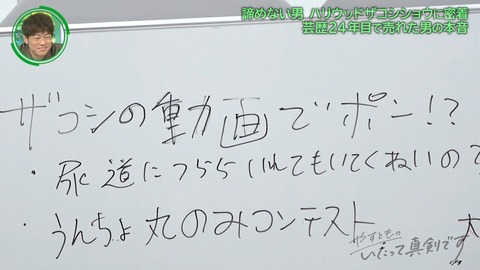 諦めない男 ハリウッドザコシショウに密着
芸歴24年目で売れた男の本音
ザコシの動画でポン!?
・尿道につららいれてもいてくねいので
・うんちょ丸のみコンテスト
大
やすとものいたって真剣です